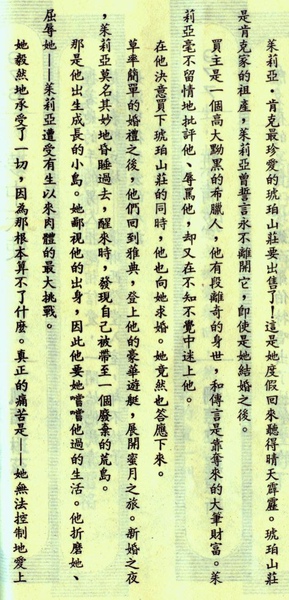 茱莉亞‧肯克最珍愛的琥珀山莊要出售了！這是她度假回來聽得晴天霹靂。琥珀山莊
是肯克家的祖產，茱莉亞曾誓言永不離開它，即使是她結婚之後。
買主是一個高大黝黑的希臘人，他有段離奇的身世，和傳言是靠奪來的大筆財富。茱
莉亞毫不留情地批評他、辱罵他，却又在不知不覺中迷上他。
在他決意買下琥珀山莊的同時，他也向她求婚。她竟然也答應下來。
草率簡單的婚禮之後，他們回到雅典，登上他的豪華遊艇，展開蜜月之旅。新婚之夜
，茱莉亞莫名其妙地昏睡過去，醒來時，發現自己被帶至一個廢棄的荒島。
那是他出生成長的小島。她鄙視他的出身，因此他要她嚐嚐他過的生活。他折磨她、
屈辱她——茱莉亞遭受有生以來肉體的最大挑戰。
她毅然地承受了一切，因為那根本算不了什麼。真正的痛苦是——她無法控制地愛上